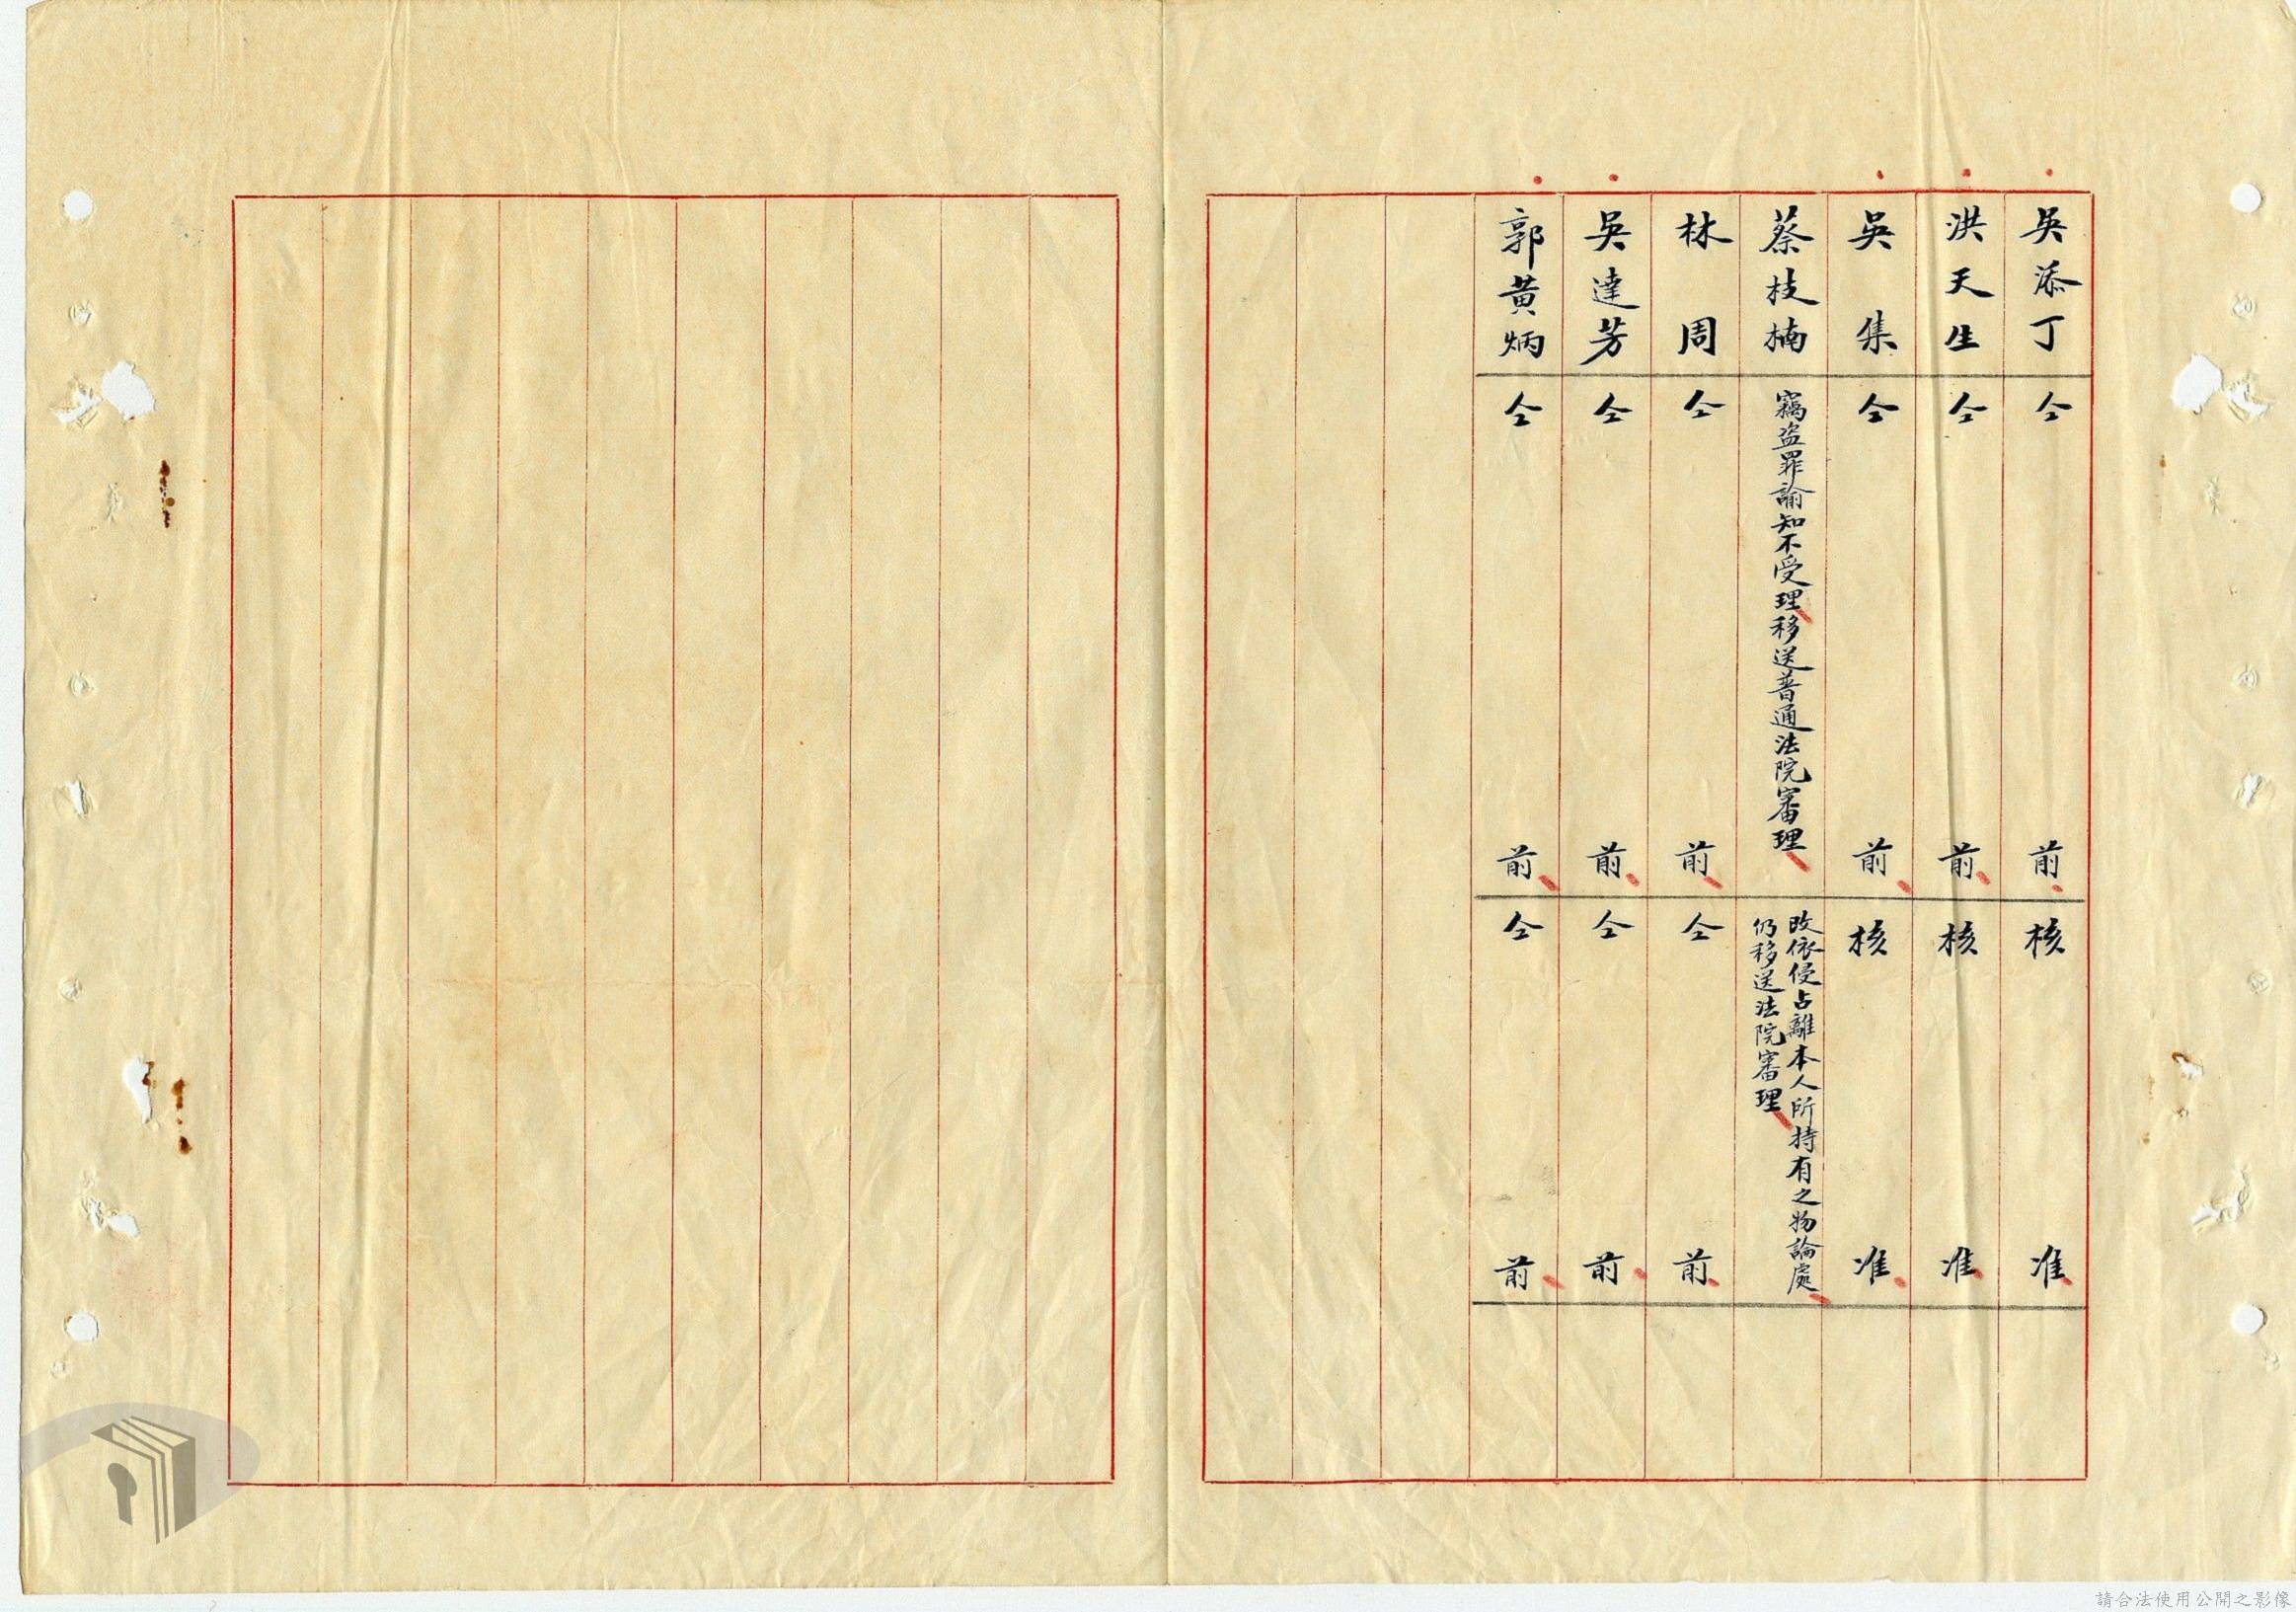 吳添丁 仝前 核准
洪天生 仝前 核准
吳集 仝前 核准
蔡枝楠 竊盜罪諭知不受理移送普通法院審理 改依侵占離本人所持有之物論處
仍移送法院審理
林周 仝前 仝前
吳達芳 仝前 仝前
郭黃炳 仝前 仝前
請合法使用公開之影像